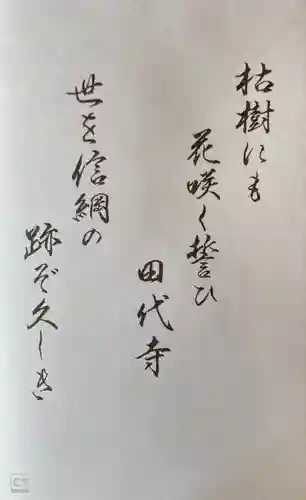 枯樹にも
花咲く誓ひ
田代寺
世を信綱の
跡ぞ久しき